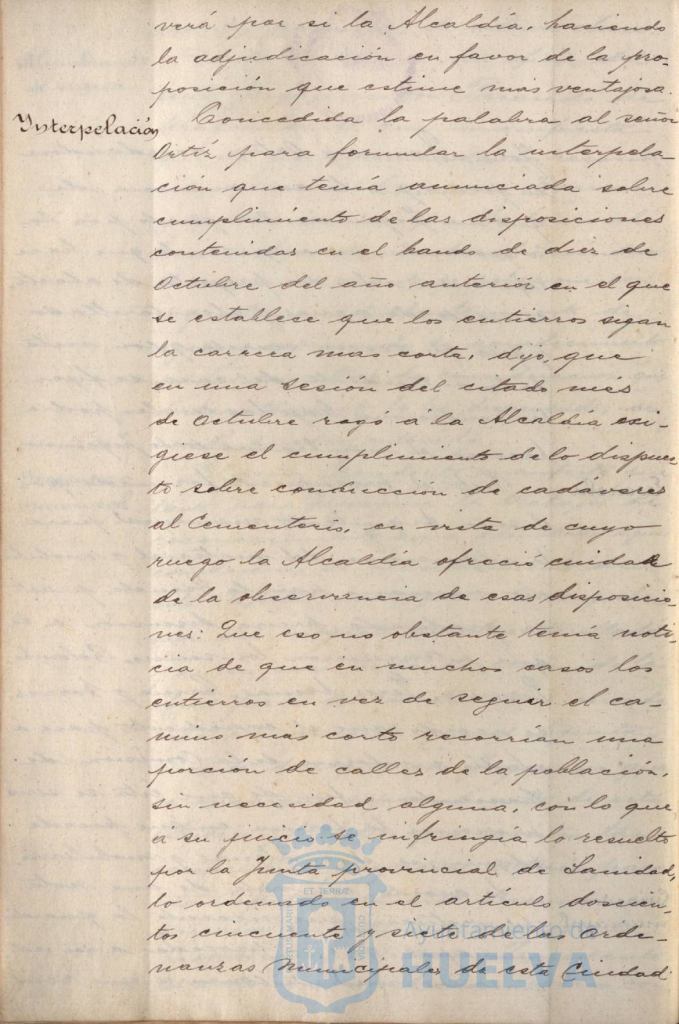 verá por si la Alcaldía, haciendo
la adjudicación en favor de la pro-
posición que estime mas ventajosa.
Interpelación
Concedida la palabra al señor
Ortíz para formular la interpela
ción que tenía anunciada sobre
cumplimiento de las disposiciones
contenidas en el bando de diez de
Octubre del año anterior en el que
se establece que los entierros sigan
la carrera mas corta, dijo, que
en una sesión del citado mes
de Octubre rogó á la Alcaldía exi-
giese el cumplimiento de lo dispues
to sobre conducción de cadáveres
al Cementerio, en vista de cuyo
ruego la Alcaldía ofreció cuidar
de la observancia de esas disposicio-
nes: Que eso no obstante tenía noti-
cia de que en muchos casos los
entierros en vez de seguir el ca-
mino más corto recorrían una
porción de calles de la población,
sin necesidad alguna, con lo que
á su juicio se infringía lo resuelto
por la Junta provincial de Sanidad,
lo ordenado en el artículo doscien-
tos cincuenta y siete de las Orde-
nanzas Municipales de esta Ciudad
ET TERRAE
Ayuntamiento de
HUELVA